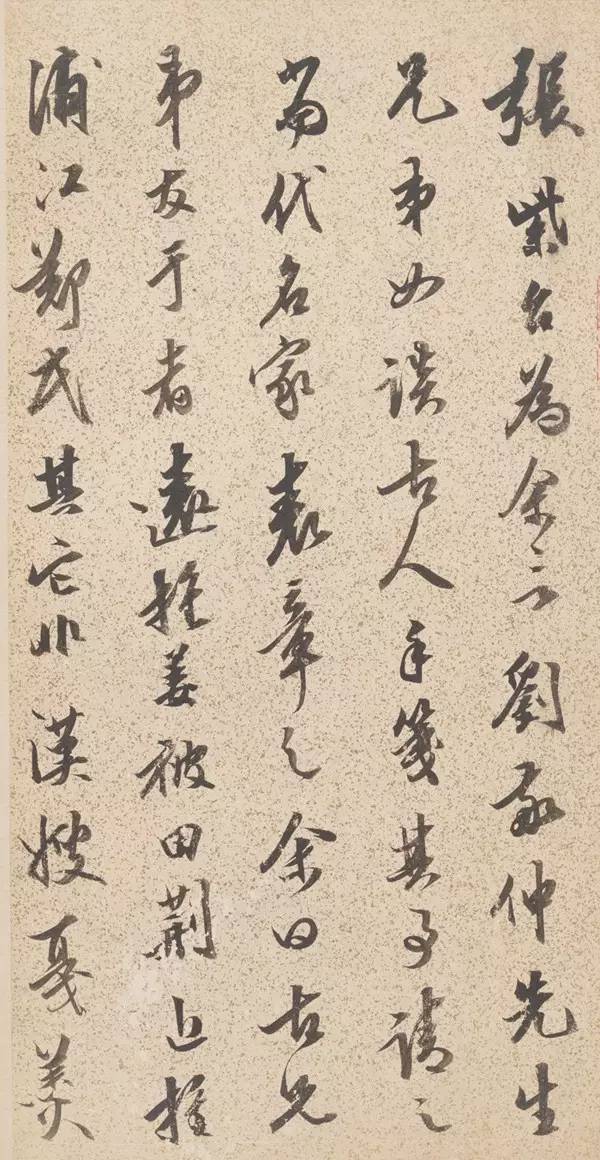 張紫台為余言劉仲先生
兄弟如談古人手箋其事請之
當代名家表章之余曰古兄
弟友于者遠推姜被田荊近推
浦江鄭氏其它非漢嫂戛羹